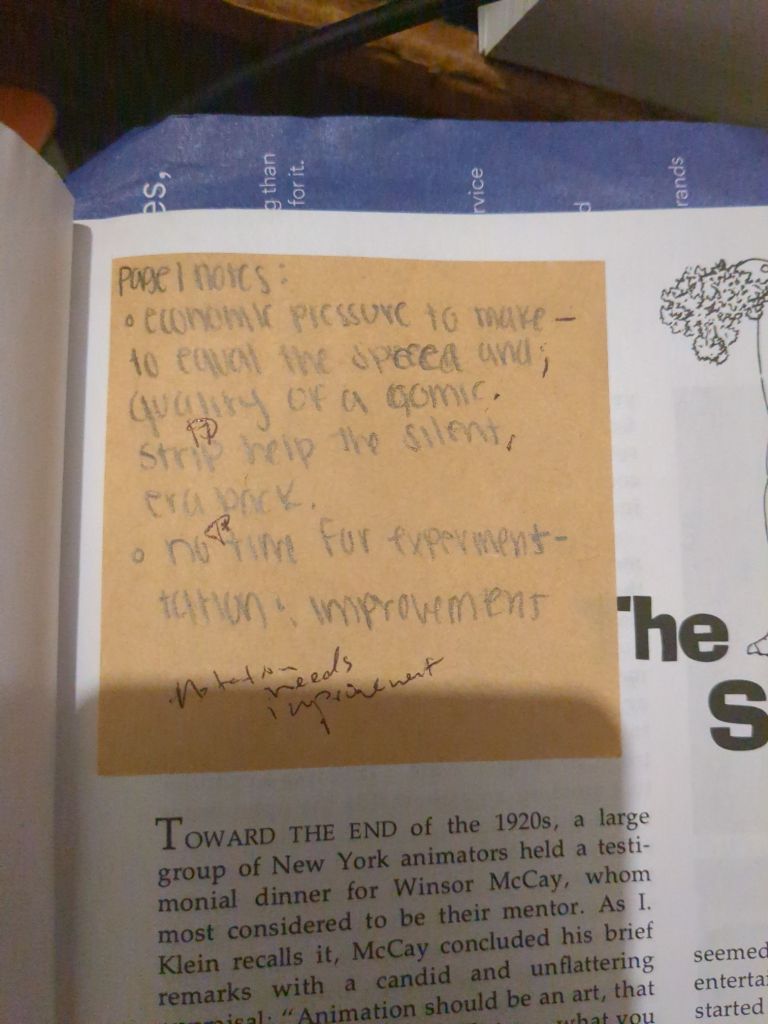 es,
g than
for it.
rvice
d
rands
page 1 notes:
• economic pressure to make –
to equal the speed and;
quality of a comic.
strip help the silent,
era back.
• no time for experiment-
tation & improvement
Notation
needs
improvement
The
S
TOWARD THE END of the 1920s, a large
group of New York animators held a testi-
monial dinner for Winsor McCay, whom
most considered to be their mentor. As I.
Klein recalls it, McCay concluded his brief
remarks with a candid and unflattering
appraisal: “Animation should be an art, that
what you
seemed
enterta
started